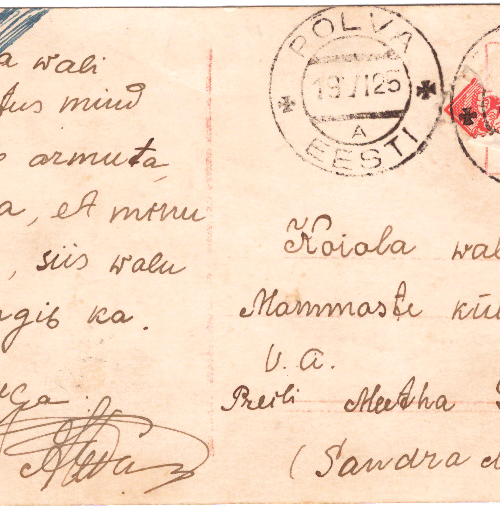 a wali
tus mind
armuta,
a, et mõnu
, siis walu
ngib ka.
PÕLVA
19 VI 25
A
EESTI
Koiola wal
Mammaste kü
V. A.
Preili Meetha
(Sandra